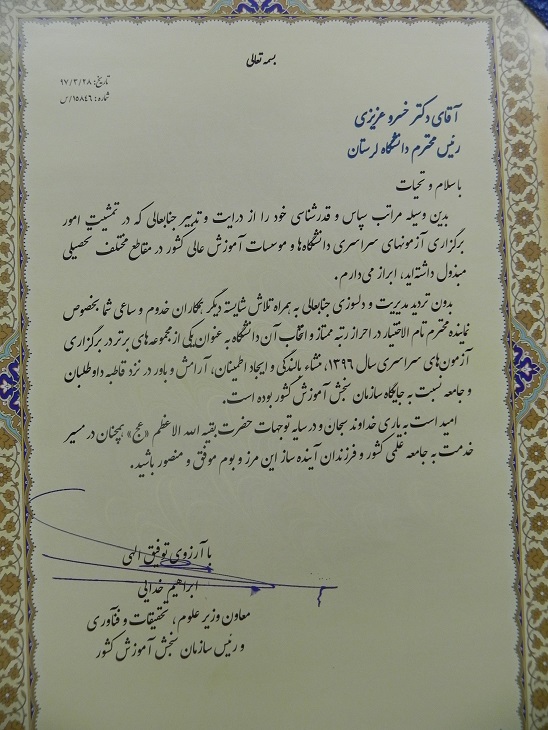 بسمه تعالی
تاریخ: ۹۷/۳/۲۸
شماره: ۱۵۸۴۶/س
آقای دکتر خسرو عزیزی
رئیس محترم دانشگاه لرستان
با سلام و تحیات
بدین وسیله مراتب سپاس و قدرشناسی خود را از درایت و تدبیر جنابعالی که در تمشیت امور
برگزاری آزمونهای سراسری دانشگاه‌ها و موسسات آموزش عالی کشور در مقاطع مختلف تحصیلی
مبذول داشته‌اید، ابراز می‌دارم.
بدون تردید مدیریت و دلسوزی جنابعالی به همراه تلاش شایسته دیگر همکاران خدوم و ساعی شما بخصوص
نماینده محترم تام الاختیار در احراز رتبه ممتاز و انتخاب آن دانشگاه به عنوان یکی از مجموعه‌های برتر در برگزاری
آزمون‌های سراسری سال ۱۳۹۶، منشاء بالندگی و ایجاد اطمینان، آرامش و باور در نزد قاطبه داوطلبان
و جامعه نسبت به جایگاه سازمان سنجش آموزش کشور بوده است.
امید است به یاری خداوند سبحان و در سایه توجهات حضرت بقیه الله الاعظم «عج» همچنان در مسیر
خدمت به جامعه علمی کشور و فرزندان آینده ساز این مرز و بوم موفق و منصور باشید.
با آرزوی توفیق الهی
ابراهیم خدایی
معاون وزیر علوم، تحقیقات و فنآوری
و رئیس سازمان سنجش آموزش کشور